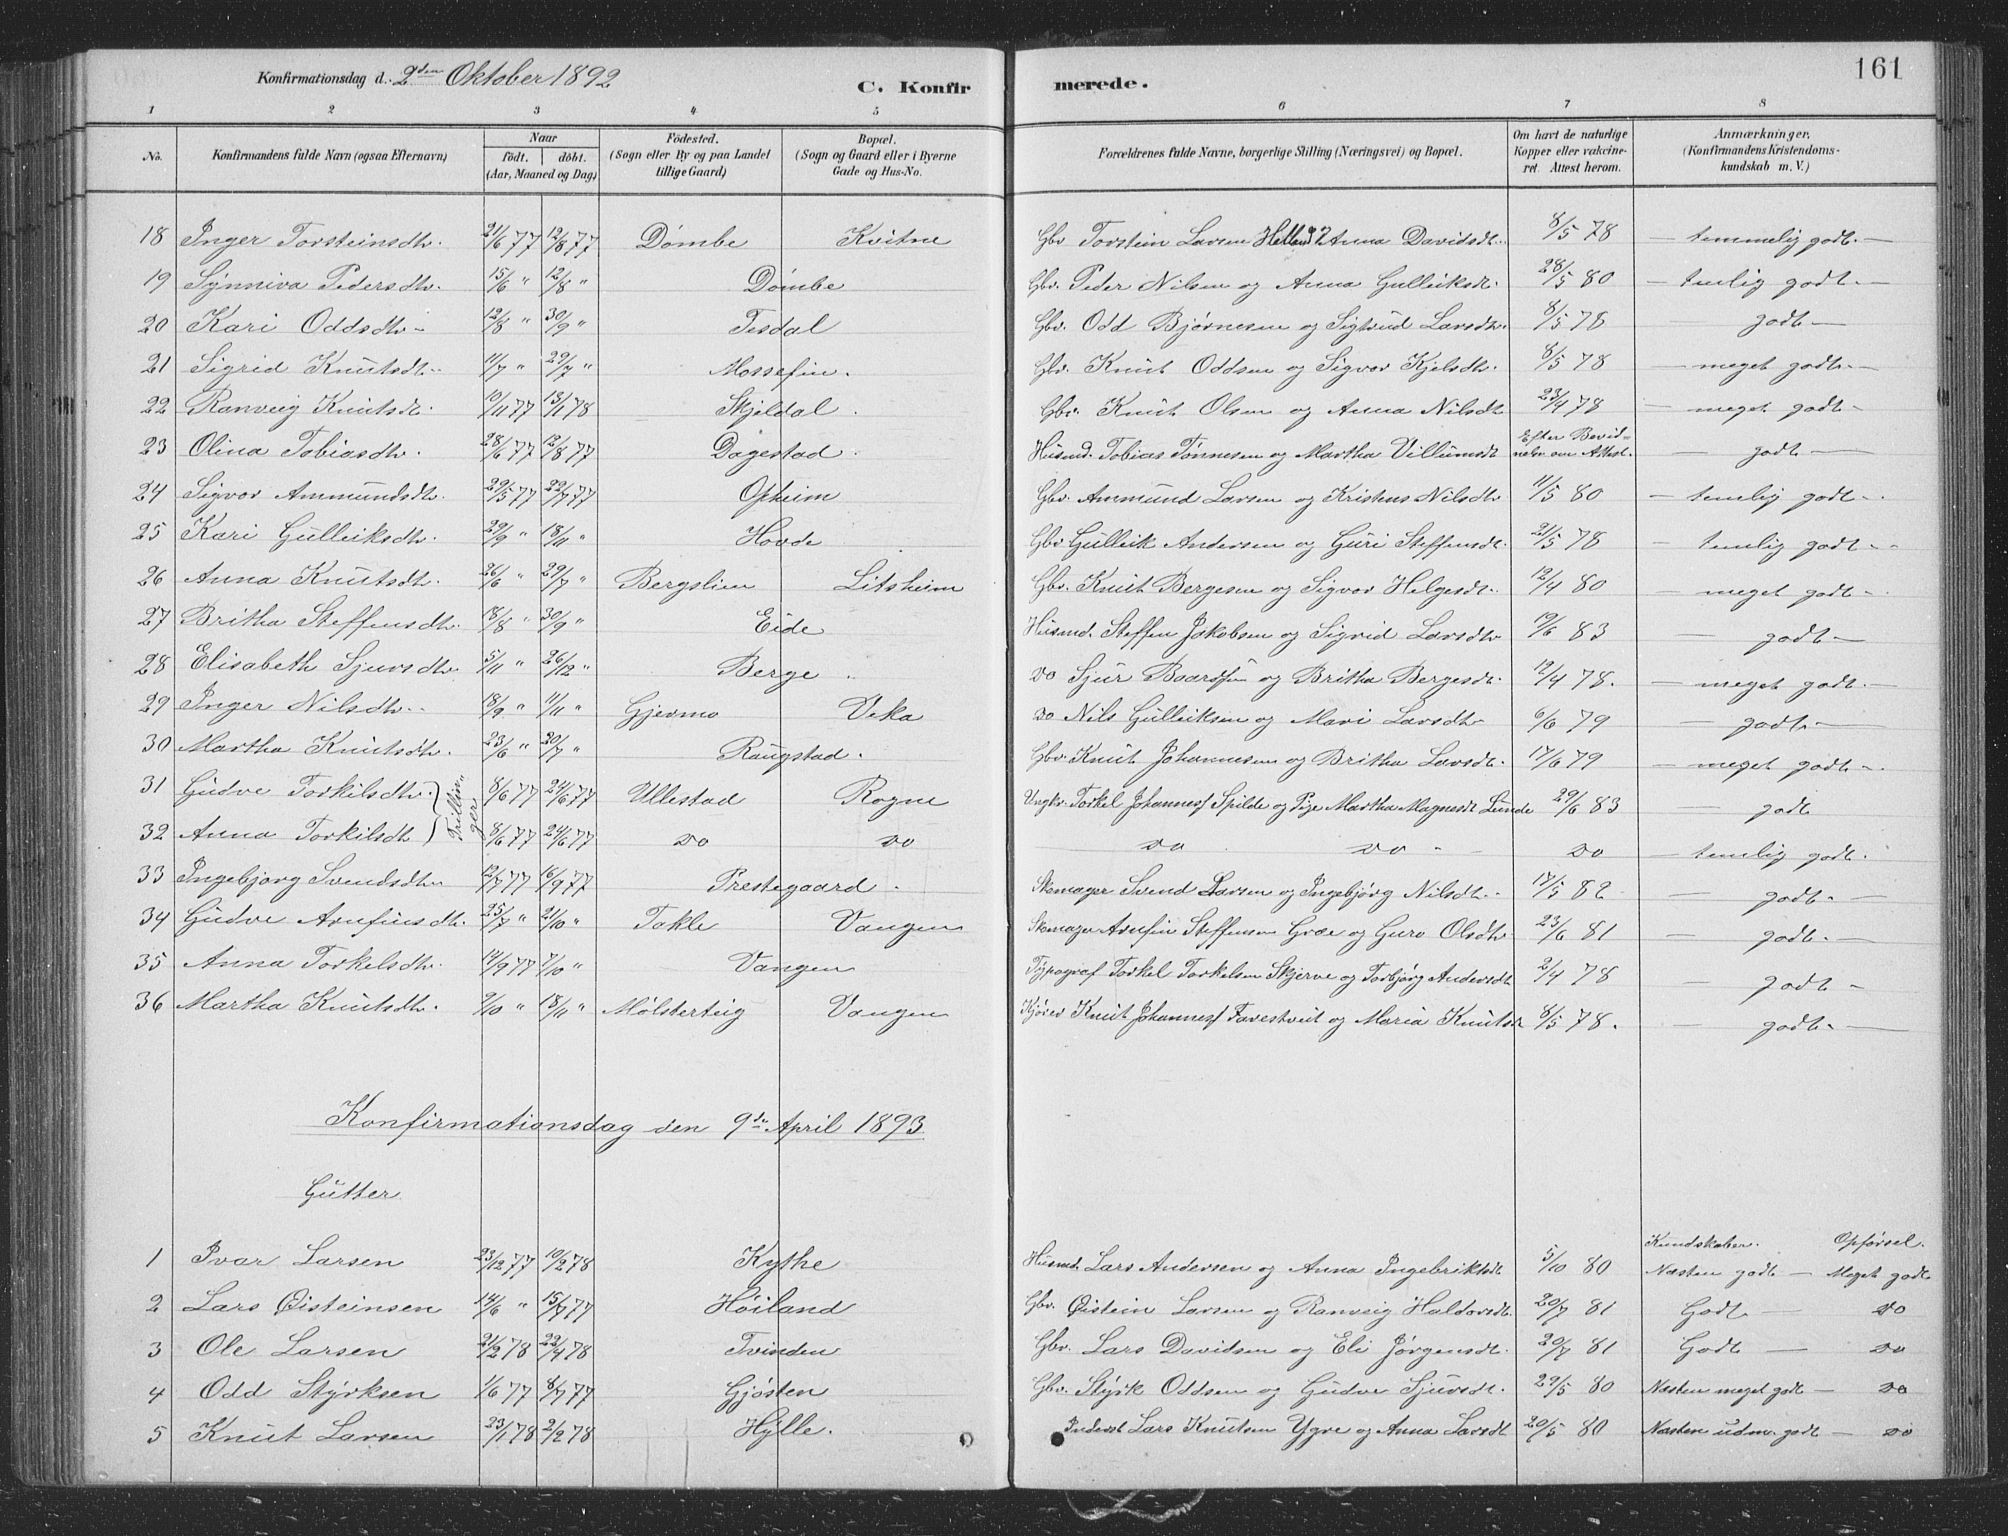 161
Konfirmationsdag d. 2den Oktober 1892 C. Konfirmerede.
1 2 3 4 5 6 7 8
No. Konfirmandens fulde Navn (ogsaa Efternavn) Naar födt. döbt. (Aar, Maaned og Dag) Födested. (Sogn eller By og paa Landet tillige Gaard) Bopæl. (Sogn og Gaard eller i Byerne Gade og Hus-No. Forældrenes fulde Navne, borgerlige Stilling (Næringsvei) og Bopæl. Om havt de naturlige Kopper eller vakcineret. Attest herom. Anmærkninger. (Konfirmandens Kristendomskundskab m. V.)
18 Inger Torsteinsdtr. 21/6 77 12/8 77 Dømbe Kvitne Gbr Torstein Larsen Helland Anna Davidsdt. 8/5 78 — temmelig godt. —
19 Synniva Pedersdtr. 15/6 " 12/8 " Dømbe Gbr. Peder Nilsen og Anna Gulleiksdt. 28/5 80 — temlig godt. —
20 Kari Oddsdtr. 12/8 " 30/9 " Tesdal Gbr. Odd Bjørnesen og Sigtrud Larsdtr. 8/5 78 — godt —
21 Sigrid Knutsdtr. 11/7 " 29/7 " Mossefin. Gbr. Knut Oddsen og Sigvor Kjelsdtr. 8/5 78 — meget godt. —
22 Ranveig Knutsdt. 10/11 77 13/1 78 Skjeldal. Gbr. Knut Olsen og Anna Nilsdt 23/4 78 — meget godt —
23 Olina Tobiasdtr. 28/6 77 12/8 77 Dagestad. Husmd. Tobias Tønnesen og Martha Villumsdt Efter Bevidnelse om Attest. — godt —
24 Sigvor Ammundsdtr. 29/5 77 22/7 77 Opheim Gbr. Ammund Larsen og Nilsdtr 11/5 80 — temlig godt —
25 Kari Gulleiksdtr. 29/9 " 18/11 " Hovde Gbr Gulleik Andersen og Guri Steffensdt. 21/5 78 — temlig godt —
26 Anna Knutsdtr. 26/6 " 29/7 " Bergslien Litsheim Gbr. Knut Bergesen og Sigvor Helgesdt. 12/4 80 — meget godt —
27 Britha Steffensdtr. 18/8 " 30/9 " Eide Husmd. Steffen Jakobsen og Sigrid Larsdtr 19/6 83 — godt —
28 Elisabeth Sjursdtr. 5/11 " 26/12 " Berge. do Sjur Baardsen og Britha Bergesdt. 12/4 78. — meget godt —
29 Inger Nilsdtr. 18/9 " 11/11 " Gjermo Veka do Nils Gulleiksen og Mari Larsdtr 6/6 79 — godt —
30 Martha Knutsdtr. 23/6 " 20/7 " Raugstad. Gbr Knut Johannesen og Britha Larsdt. 17/6 79 — meget godt —
31 Gudve Torkilsdtr. Trillinger 8/6 77 24/6 77 Ullestad Rogne Ungkr. Torkel Johannesf Spilde og Pige Martha Magnesdt Lunde 29/6 83 — godt
32 Anna Torkilsdtr 8/6 77 24/6 77 do do do do do — temlig godt.
33 Ingebjorg Svendsdtr 12/7 77 16/9 77 Prestegaard. Skomager Svend Larsen og Ingebjørg Nilsdtr. 17/5 82 — godt. —
34 Gudve Arnfinsdt. 25/7 " 21/10 " Takle Vangen Skomager Arnfin Steffensen Græe og Guro Olsdtr. 23/6 81 — godt. —
35 Anna Torkelsdtr. 14/9 77 7/10 " Vangen Typograf Torkel Torkelsen Skjerve og Torbjørg Andersdt 2/4 78 — godt —
36 Martha Knutsdtr. 9/10 " 18/11 " Mølsterteig Vangen Kjører Knut Johannesf Tarestveit og Maria Knutsdt 8/5 78. — godt. —
Konfirmationsdag den 9de April 1893.
Gutter
Kundskaber. Opførsel.
1 Ivar Larsen 23/12 77 10/2 78 Kythe Husmd. Lars Andersen og Anna Ingebriktsdt 5/10 80 Næsten godt — Meget godt
2 Lars Øisteinsen 14/6 " 15/7 77 Høiland Gbr. Øistein Larsen og Ranveig Haldorsdt. 20/7 81 Godt — do
3 Ole Larsen 21/2 78 22/4 78 Tvinden Gbr. Lars Davidsen og Eli Jørgensdt. 20/7 81 Godt — do
4 Odd Styrksen 1/6 77 8/7 77 Gjøsten Gbr. Styrk Oddsen og Gudve Sjursdt. 29/5 80 Næsten meget godt — do
5 Knut Larsen 23/1 78 2/2 78 Hylle. Inderst Lars Knutsen Ygre og Anna Larsdt 20/5 80 Næsten udm. godt — do